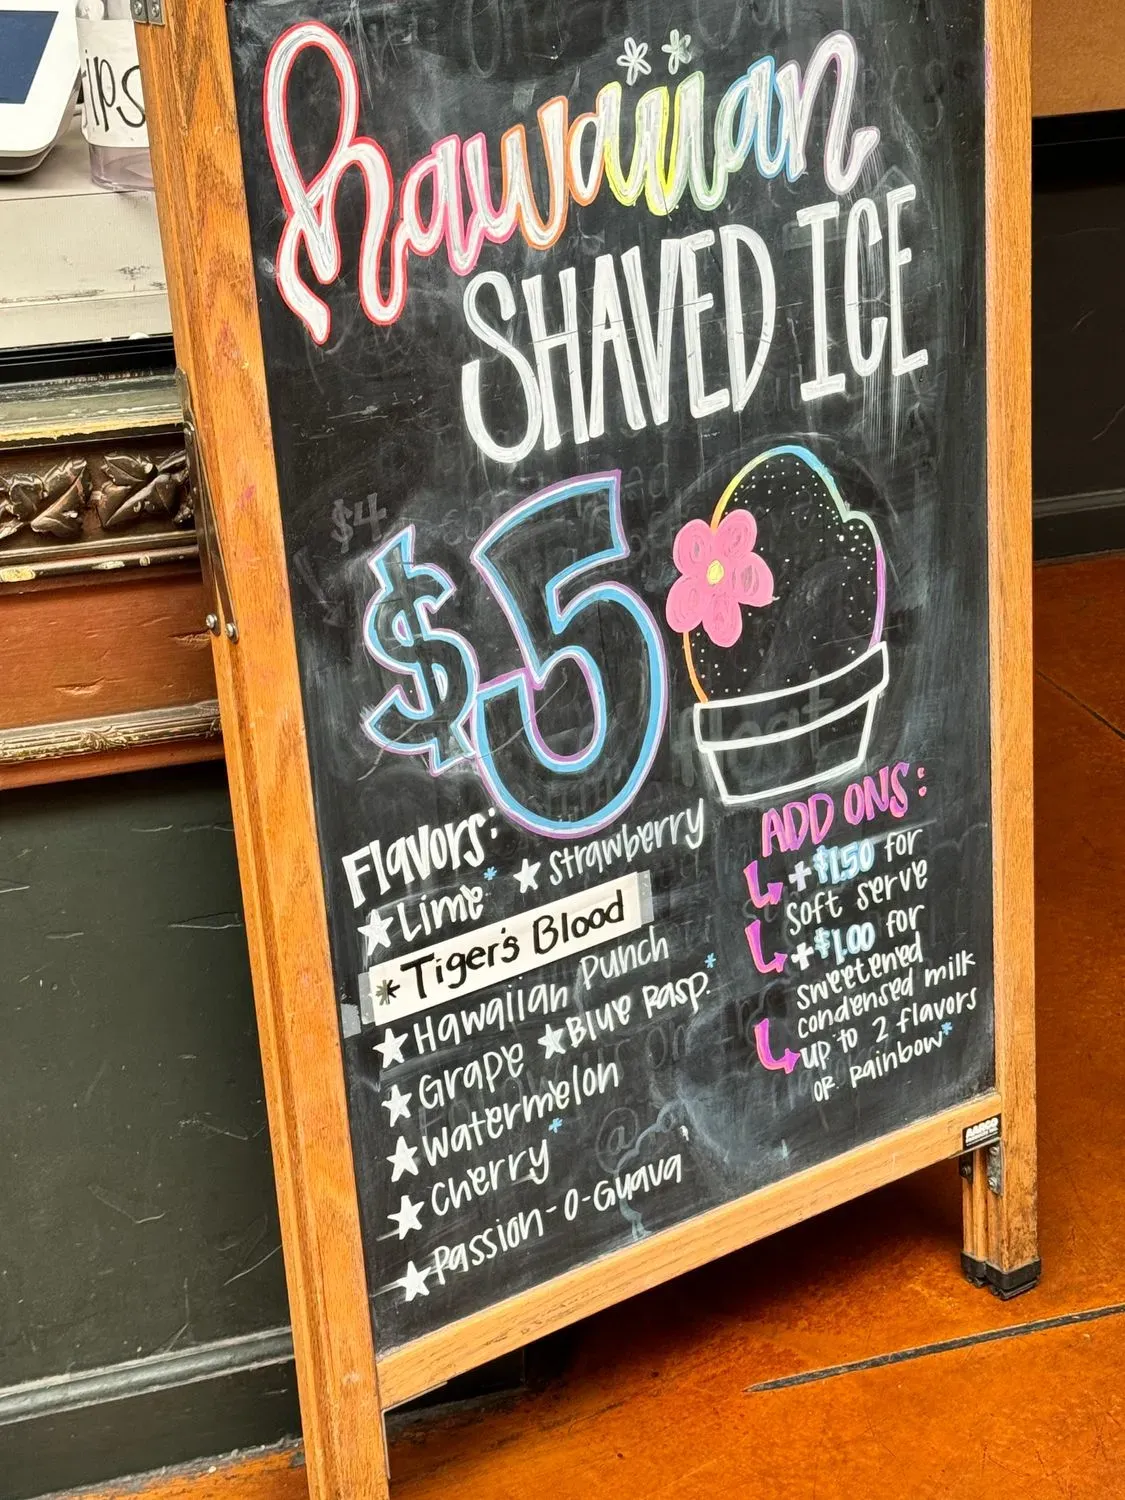 TIPS
hawaiian
SHAVED ICE
$4
$5
Flavors:
★ Lime* ★ Strawberry
* Tiger's Blood
★ Hawaiian Punch
★ Grape ★ Blue Rasp.*
★ Watermelon
★ Cherry*
★ Passion-O-Guava
ADD ONS:
+$1.50 for
soft serve
+$1.00 for
sweetened
condensed milk
up to 2 flavors
or rainbow*